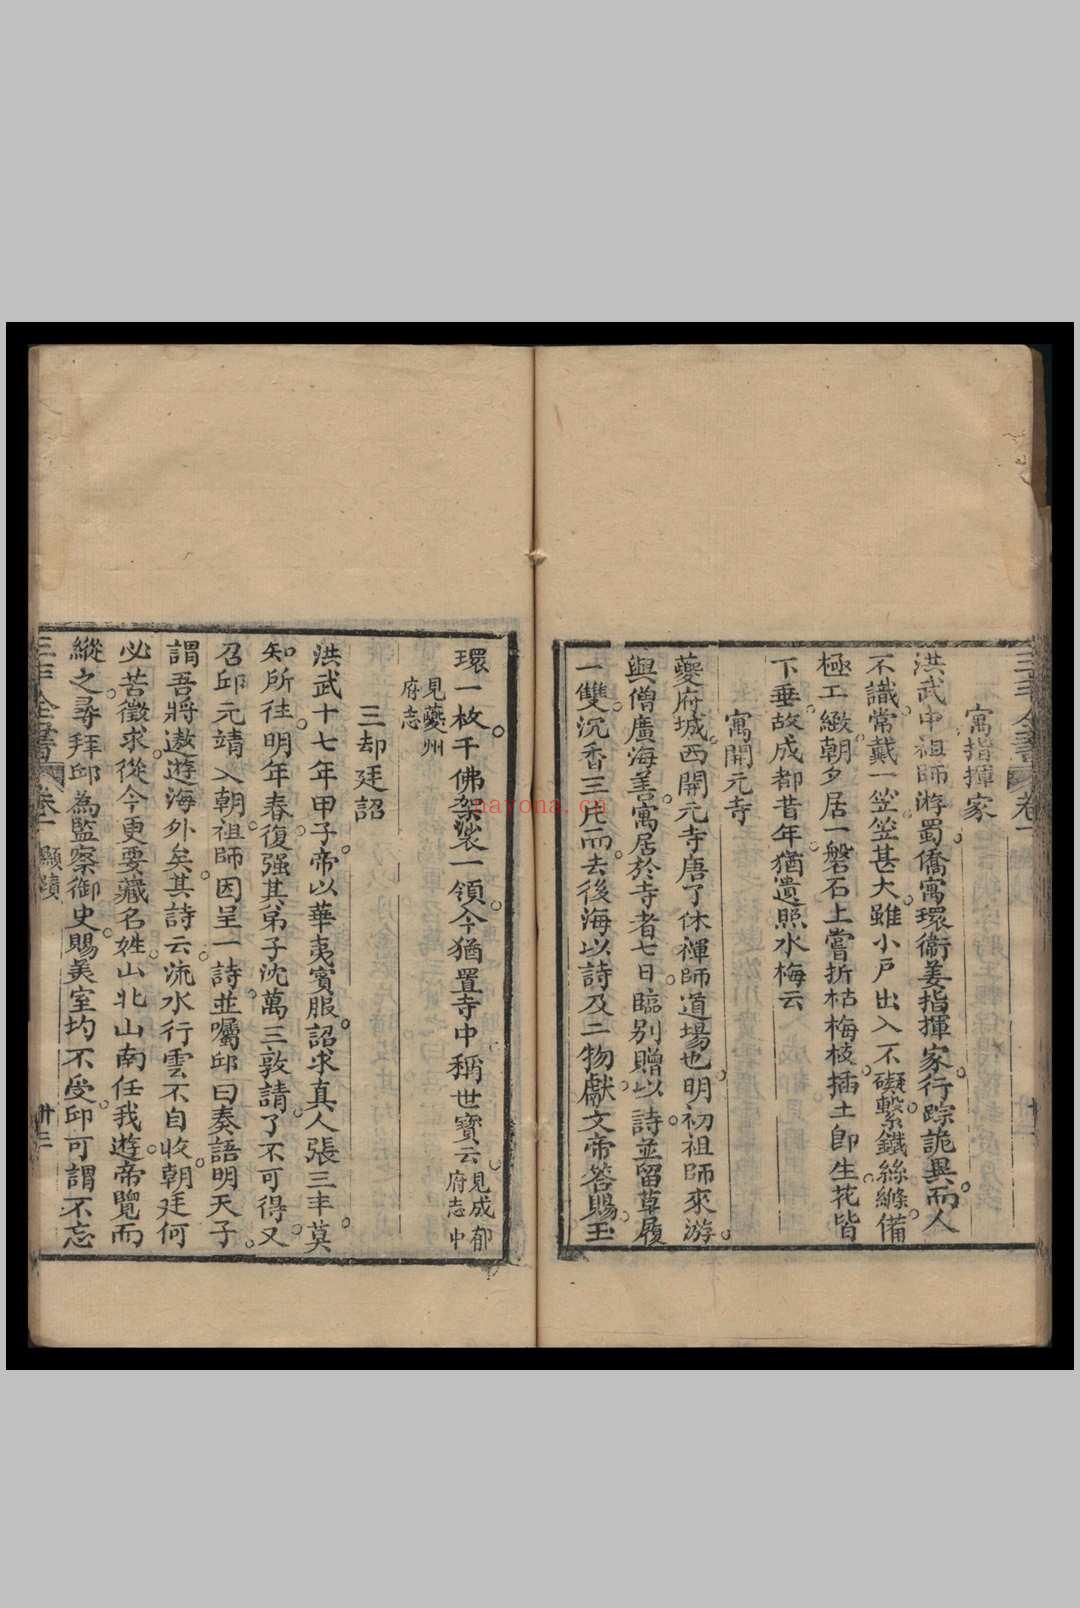 三丰全書 卷一
寓指揮家
洪武中祖師游蜀僑寓環衞姜指揮家行踪詭異而人
不識常戴一笠笠甚大雖小戶出入不礙繫鐵絲縧備
極工緻朝夕居一磐石上嘗折枯梅枝插土卽生花皆
下垂故成都昔年猶遺照水梅云
寓開元寺
夔府城西開元寺唐了休禪師道場也明初祖師來游
與僧廣海善寓居於寺者七日臨别贈以詩並留草履
一雙沉香三片而去後海以詩及二物獻文帝答賜玉
環一枚千佛袈裟一領今猶置寺中稱世寶云
見成都府志中
見夔州府志
三却廷詔
洪武十七年甲子帝以華夷賓服詔求真人張三丰莫
知所往明年春復强其弟子沈萬三敦請了不可得又
召邱元靖入朝祖師因呈一詩並囑邱曰奏語明天子
謂吾將遨遊海外矣其詩云流水行雲不自收朝廷何
必苦徵求從今更要藏名姓山北山南任我遊帝覽而
縱之尋拜邱為監察御史賜美室均不受邱可謂不忘
三丰全書 卷一 顯蹟 廿三
nayona.cn